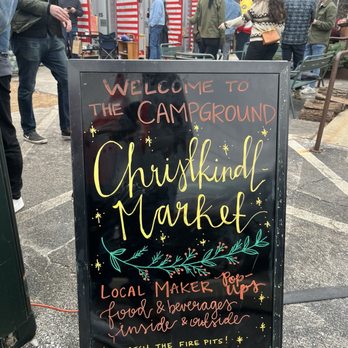 WELCOME TO
THE CAMPGROUND
Christkindl-
Market
LOCAL MAKER Pop-
Ups
food & beverages
inside & outside
THE FIRE PITS!